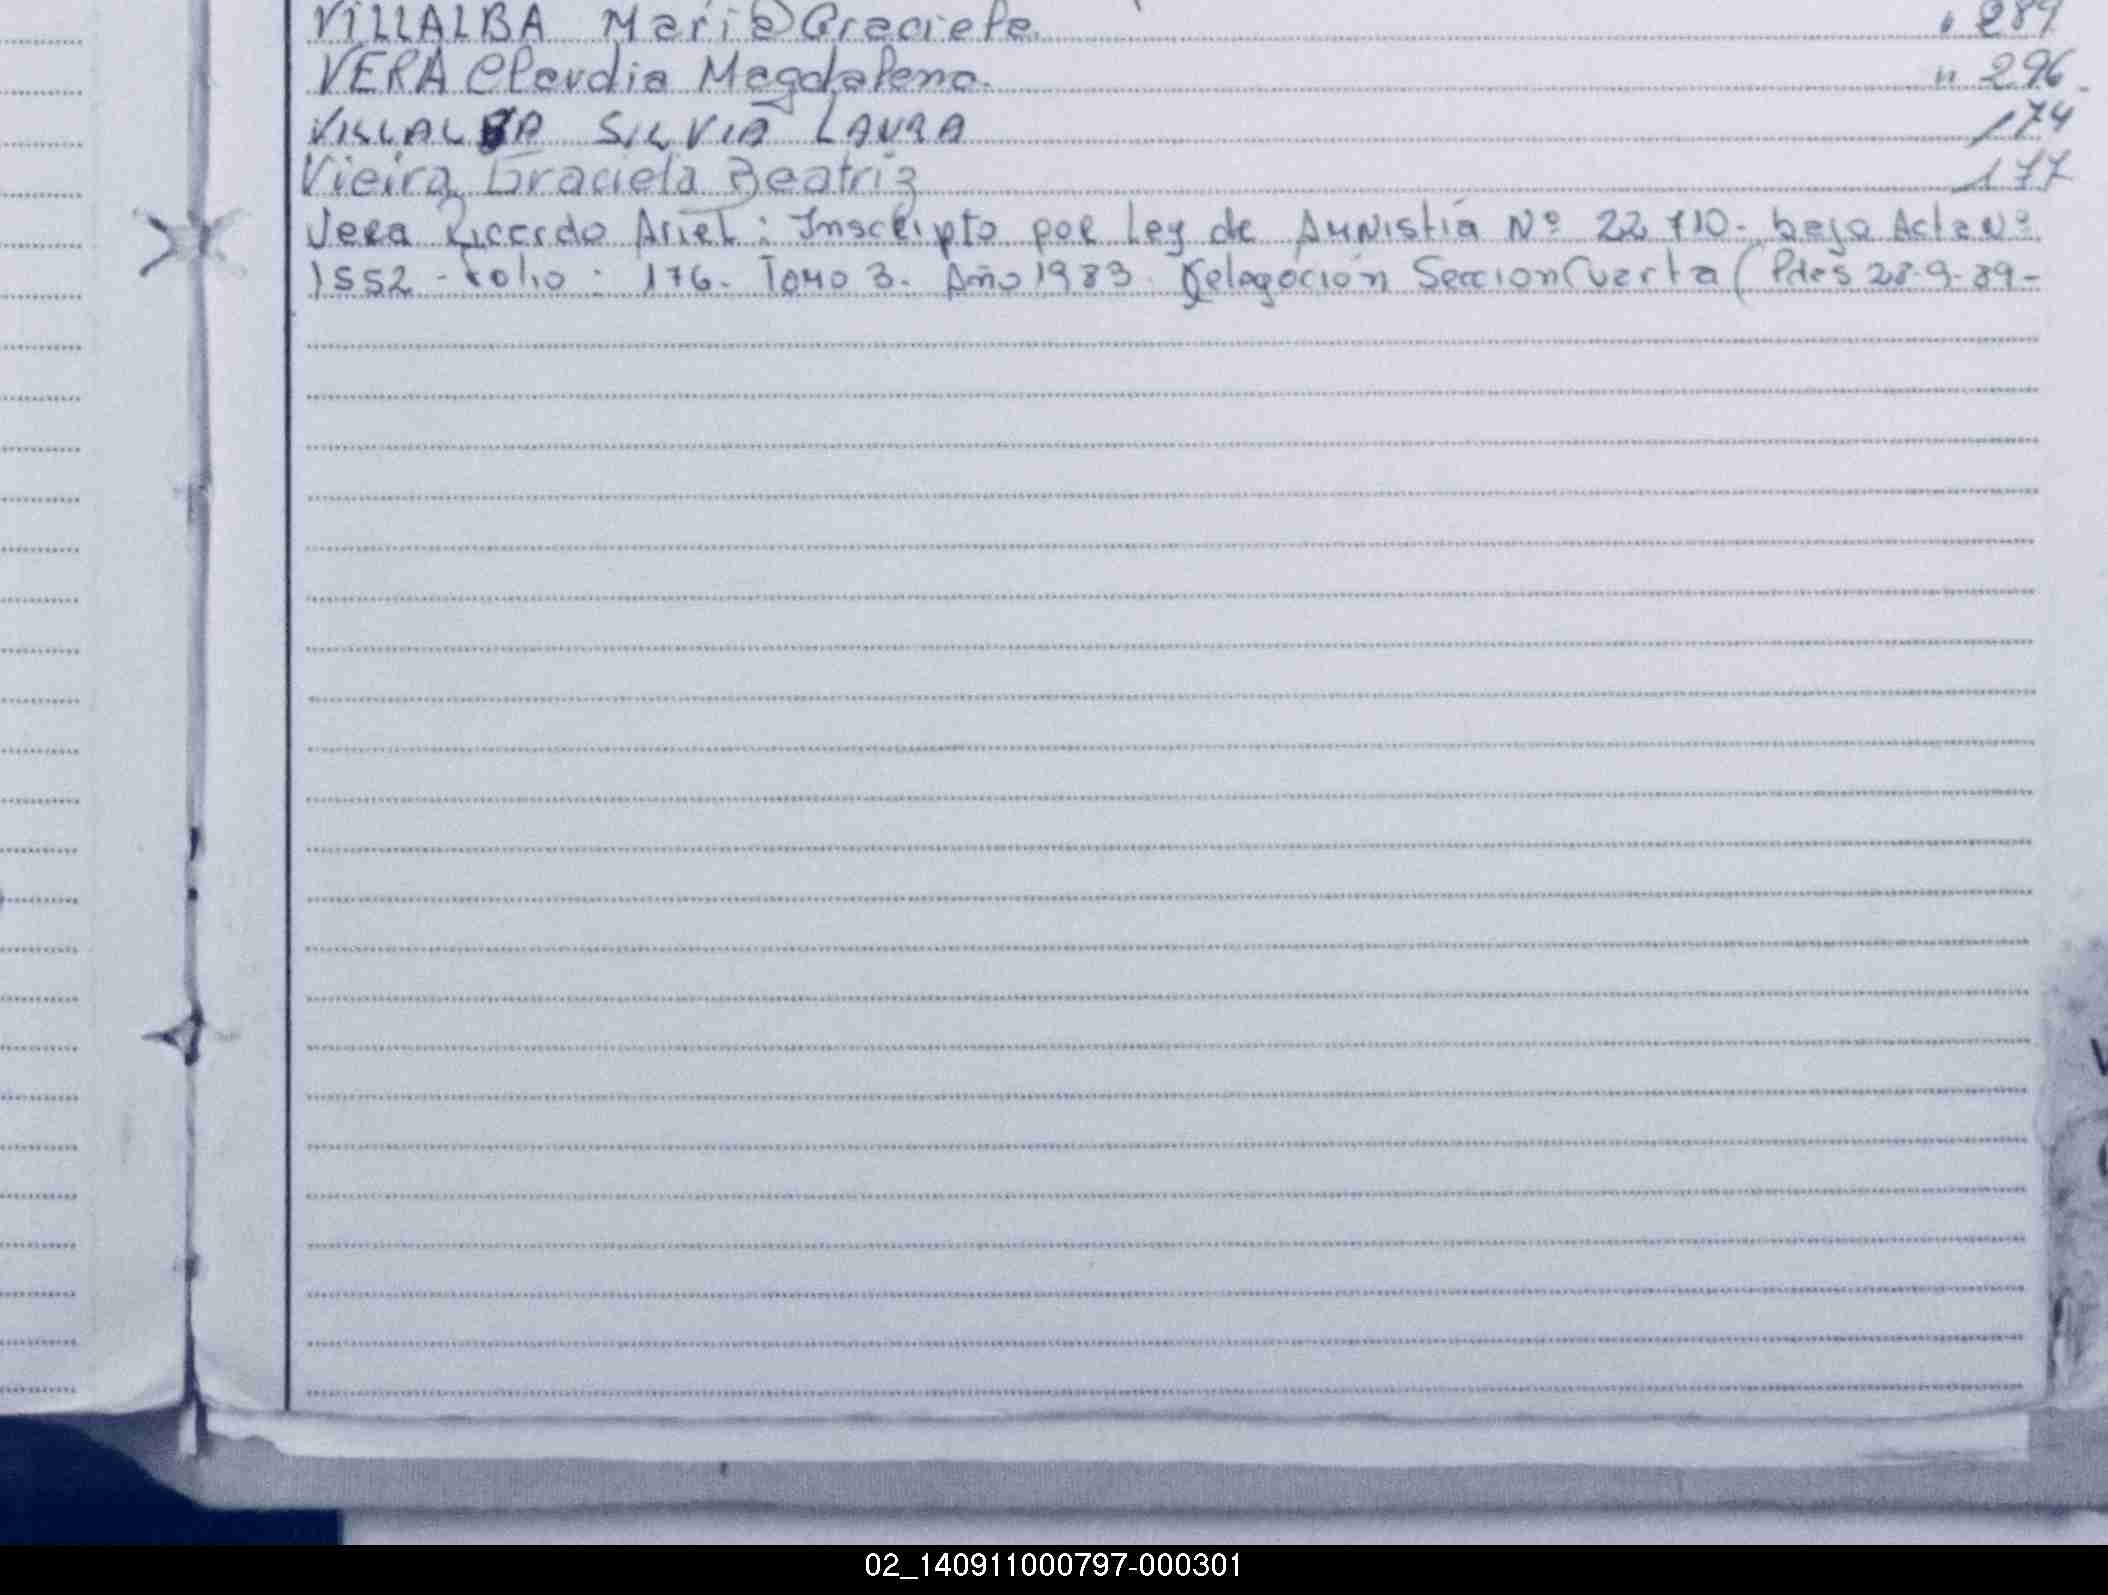 VILLALBA María Graciela. " 289
VERA Claudia Magdalena. " 296
VILLALBA SILVIA LAURA 174
Vieira Graciela Beatriz 177
Vera Ricardo Ariel: Inscripto por Ley de Amnistía Nº 22710- bajo Acta Nº
1552 - Folio: 176- Tomo 3. Año 1983. Delegación Seccion Cuarta ( Pdas 28-9-89-
02_140911000797-000301